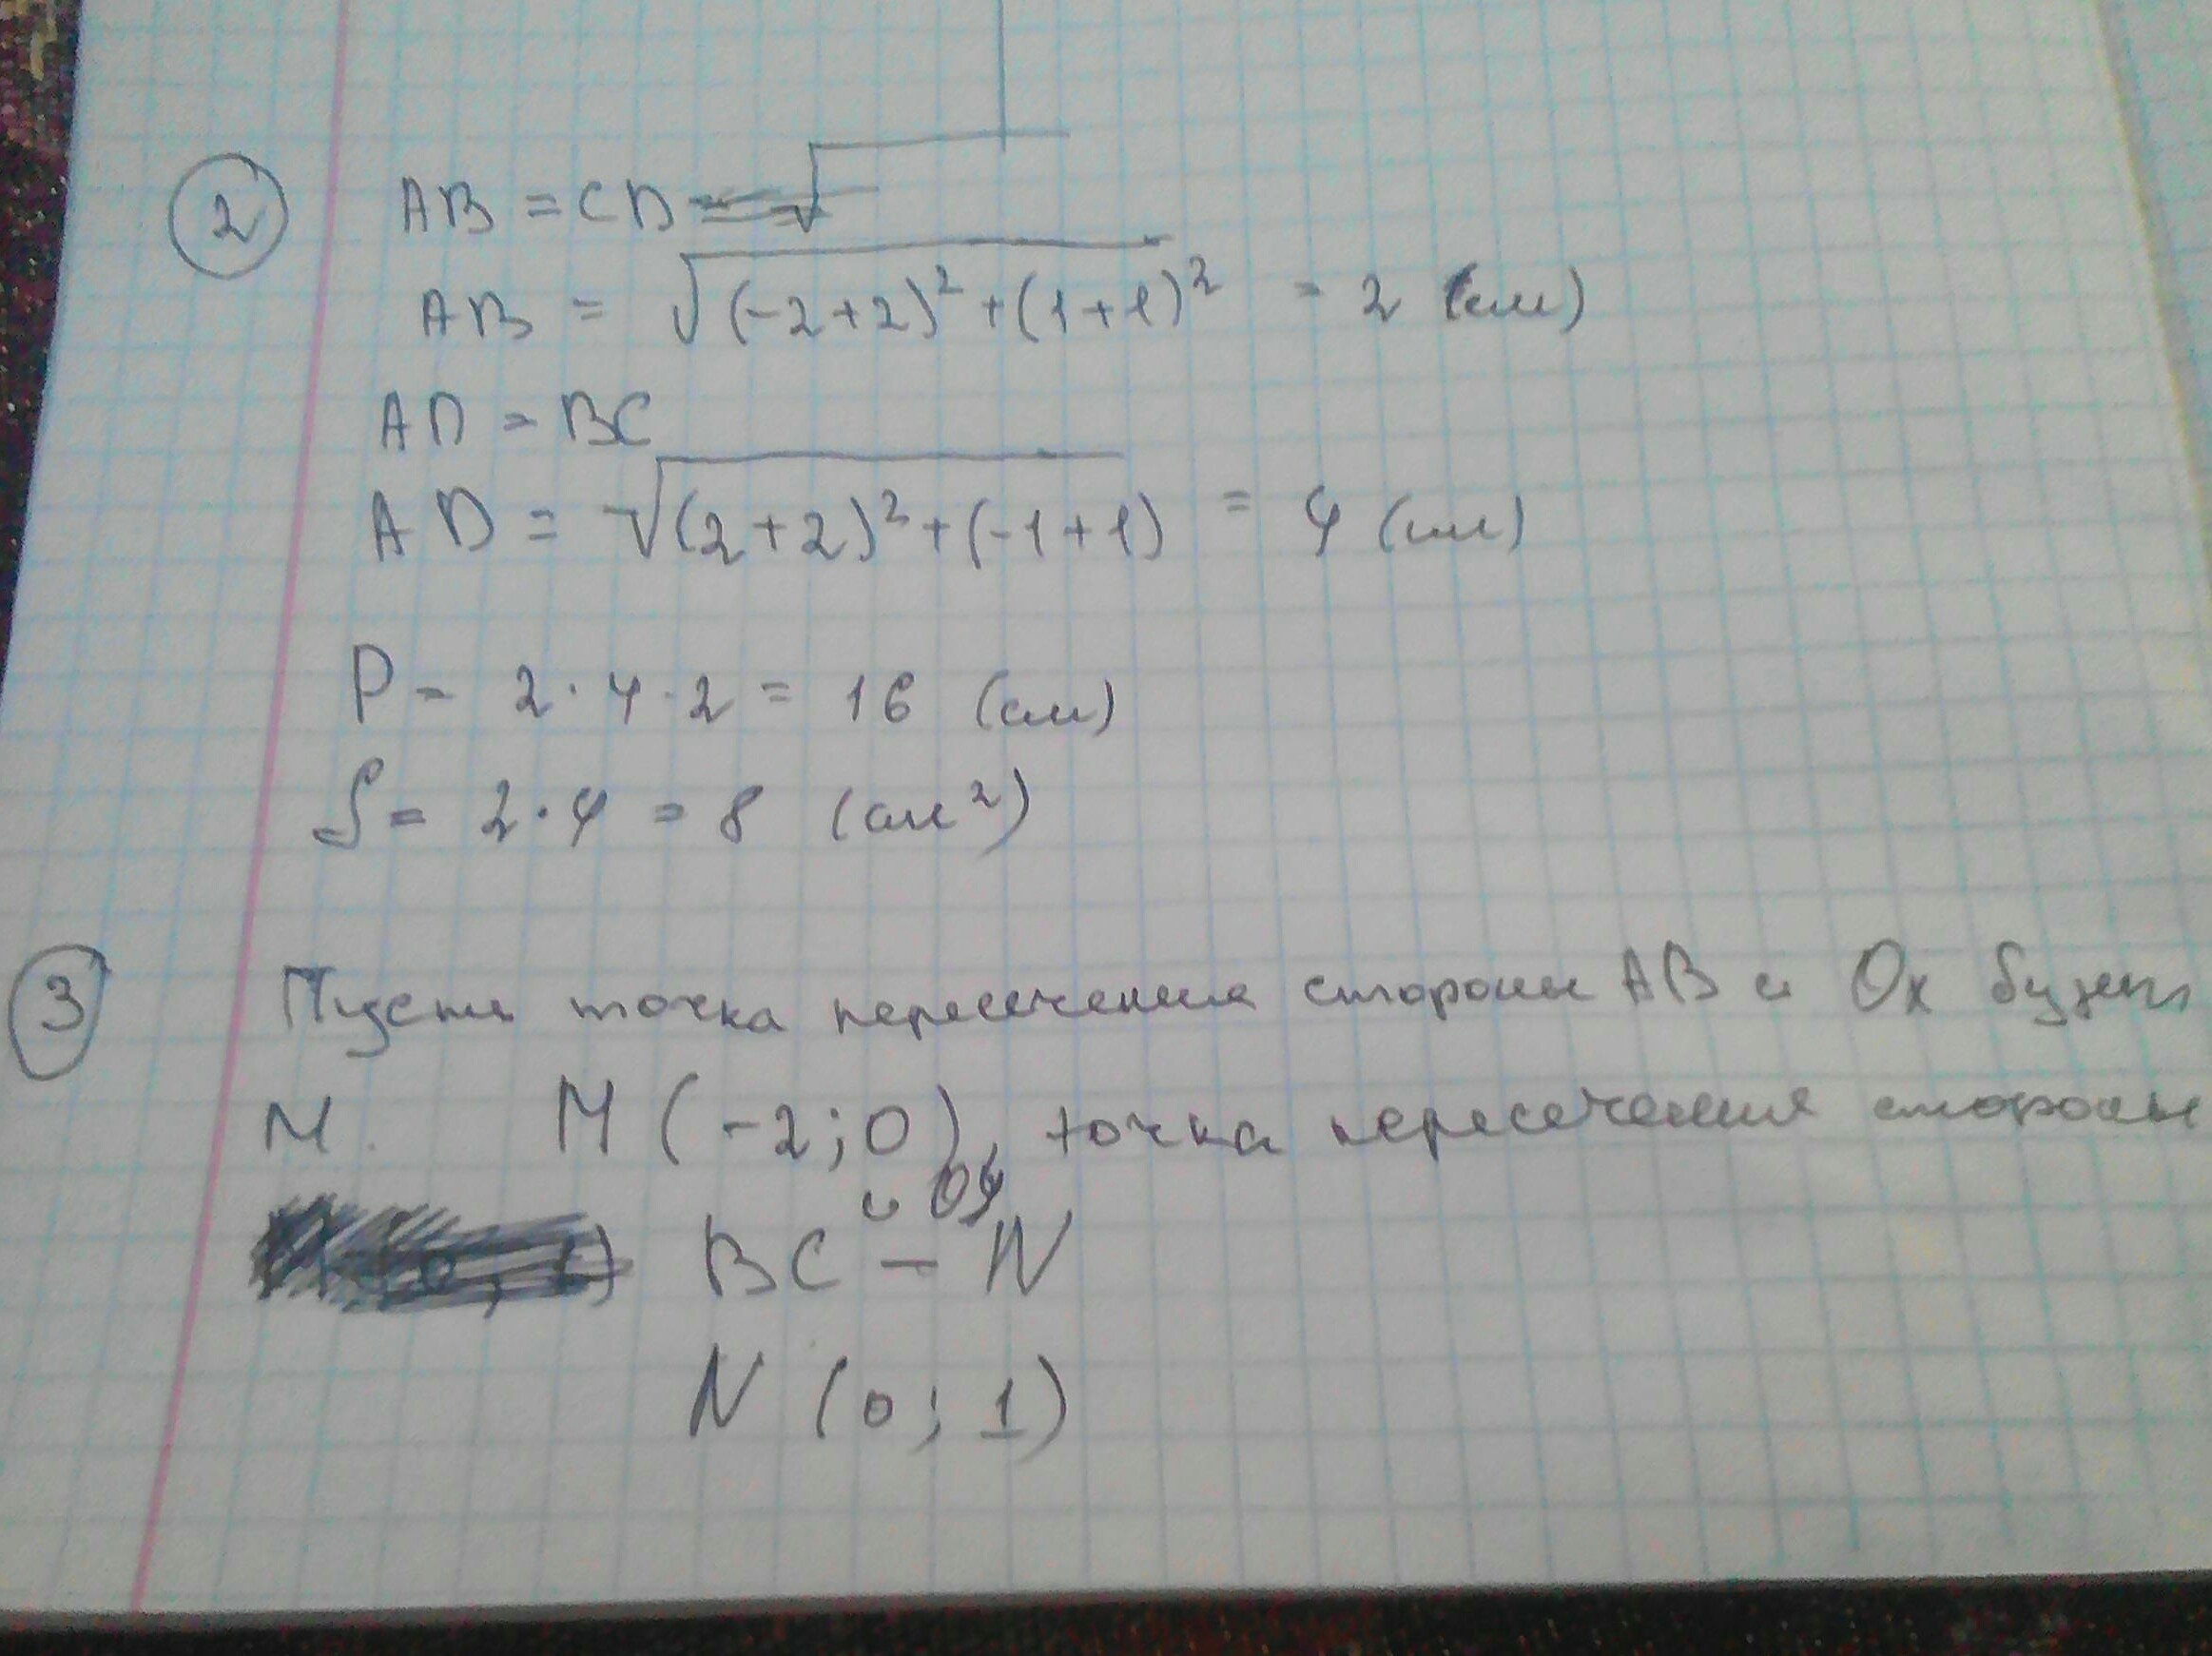 2 AB = CD = √
AB = √(-2+2)² + (1+1)² = 2 (см)
AD = BC
AD = √(2+2)² + (-1+1) = 4 (см)
P = 2 · 4 · 2 = 16 (см)
S = 2 · 4 = 8 (см²)
3 Пусть точка пересечения стороны AB и Ox будет
M. M (-2; 0), точка пересечения стороны
и Oy
BC – N
N (0; 1)